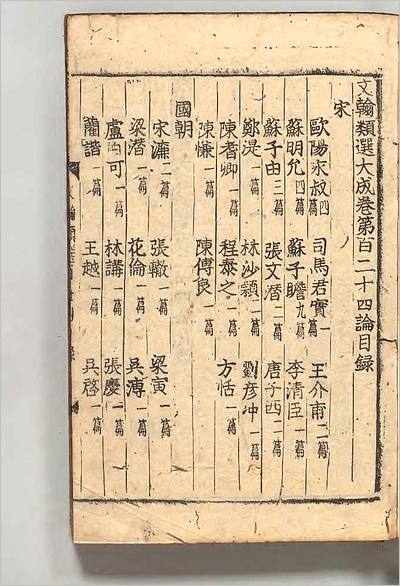 文翰類選大成卷第百二十四論目録
宋
歐陽永叔四篇 司馬君實一篇 王介甫二篇
蘇明允四篇 蘇子瞻九篇 李清臣一篇
蘇子由三篇 張文潜二篇 唐子西二篇
鄭湜一篇 林少穎一篇 劉彦冲一篇
陳耆卿一篇 程泰之一篇 方恬一篇
陳慊一篇 陳傅良一篇
國朝
宋濂二篇 張轍一篇 梁寅一篇
梁潜一篇 花倫一篇 吳溥一篇
盧可一篇 林講一篇 張慶一篇
藺諧一篇 王越一篇 吳啓一篇